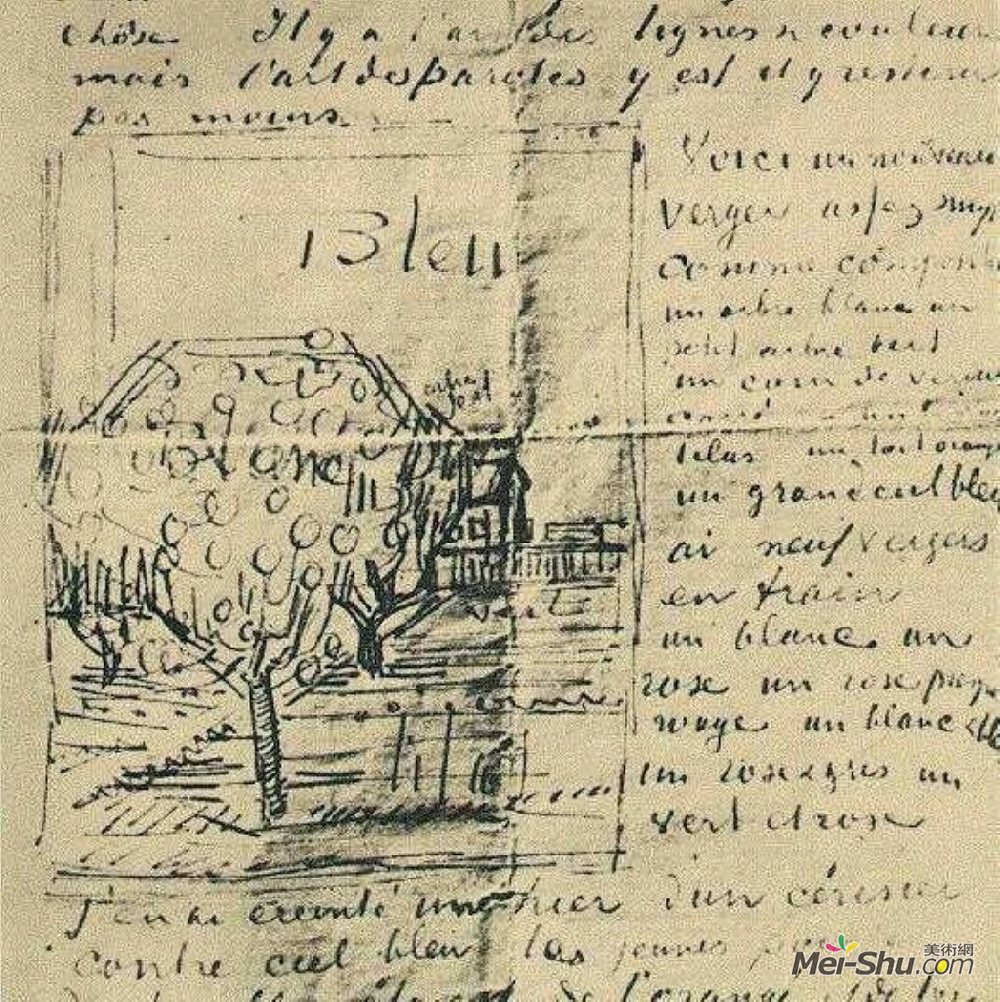 chose Il y a l'art des lignes & couleur
mais l'art des paroles y est et y restera
pas moins.
Bleu
Blanc
verte
Voici un nouveau
verger assez simp
comme composi
un arbre blanc un
petit arbre vert
un carré de verdu
lilas un toit orang
un grand ciel bleu
ai neuf vergers
en train
un blanc un
rose un rose presq
rouge un blanc et
un rose & gris un
vert et rose
J'en ai éreinté un hier d'un cérisier
contre ciel bleu les jeunes
de l'orangé
Mei-Shu.com
美術網